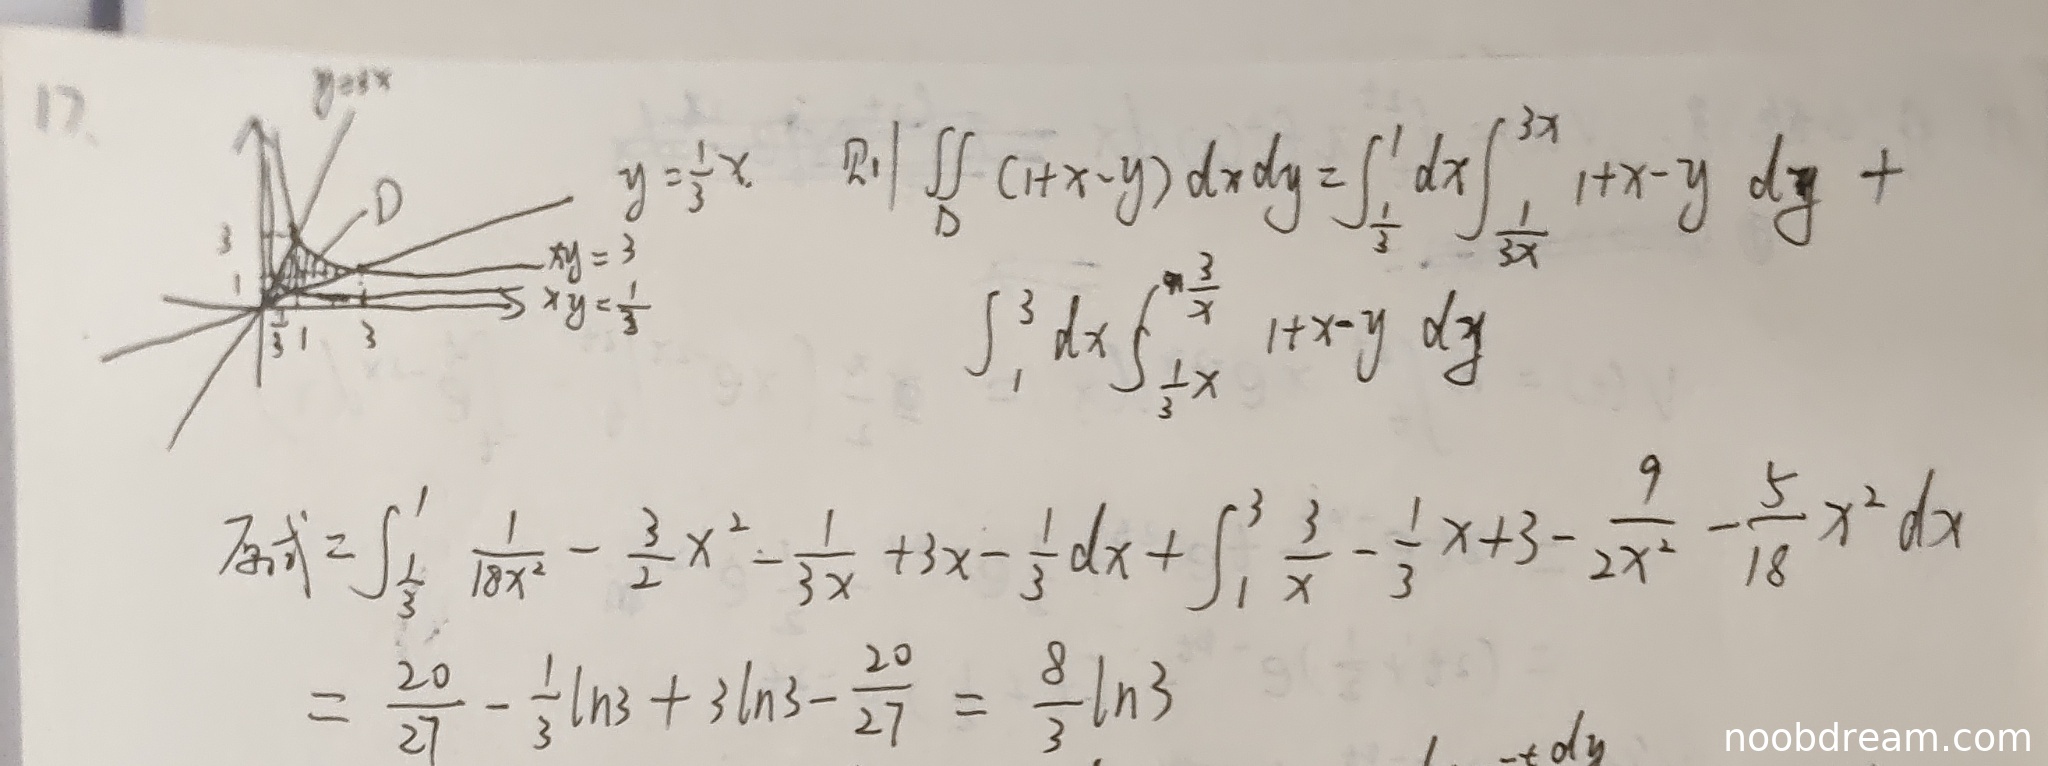 17.
y=3x
y = 1/3 x
D
3
1
xy = 3
xy = 1/3
1/3 1 3
则 ∬_D (1+x-y) dxdy = ∫_{1/3}^{1} dx ∫_{1/(3x)}^{3x} 1+x-y dy +
∫_1^3 dx ∫_{1/3 x}^{3/x} 1+x-y dy
原式 = ∫_{1/3}^{1} 1/(18x²) - 3/2 x² - 1/(3x) + 3x - 1/3 dx + ∫_1^3 3/x - 1/3 x + 3 - 9/(2x²) - 5/18 x² dx
= 20/27 - 1/3 ln3 + 3ln3 - 20/27 = 8/3 ln3
noobdream.com